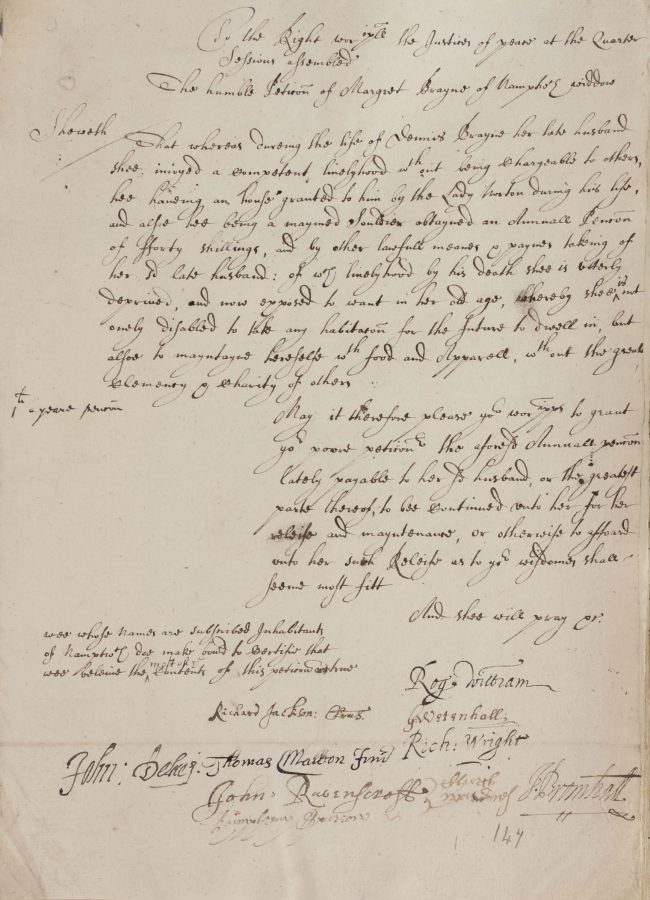 To the Right wor:ipll the Justices of peace at the Quarter
Sessions assembled
The humble Peticon of Margret Brayne of Namptw:ch widdow
Sheweth
That whereas dureing the life of Dennis Brayne her late husband
shee inioyed a competent livelyhood wthout being Chargeable to others,
hee haveing an house granted to him by the Lady Norton during his life,
and alsoe hee being a maymed Souldier obtayned an Annuall Pencon
of fforty shillings, and by other lawfull meanes & paynes taking of
her sd late husband: of wch livelyhood by his death shee is utterly
deprived, and now exposed to want in her old age, whereby shee is not
onely disabled to take any habitacon for the future to dwell in, but
alsoe to mayntayne herselfe wth food and Apparell, wthout the greate
Clemency & Charity of others
a yeare pencon
May it therefore please yor worpps to grant
yor poore peticonr the aforesd Annuall pencon
lately payable to her sd husband, or the greatest
parte thereof, to bee Continued unto her for her
releife and mayntenance, or otherwise to affoard
unto her such Releife as to yor wisdomes shall
seeme most fitt
And shee will pray &c.
wee whose Names are subscribed Inhabitants
of Namptwch doe make bould to Certifie that
wee beleive the most of ye Contents of this peticon are true
Rog: Wilbram
Richard Jackson: Clrus.
G Wetenhall
Rich: Wright
John: Thomas Malbon
John: Ravenscroft
J: Bromhall
147